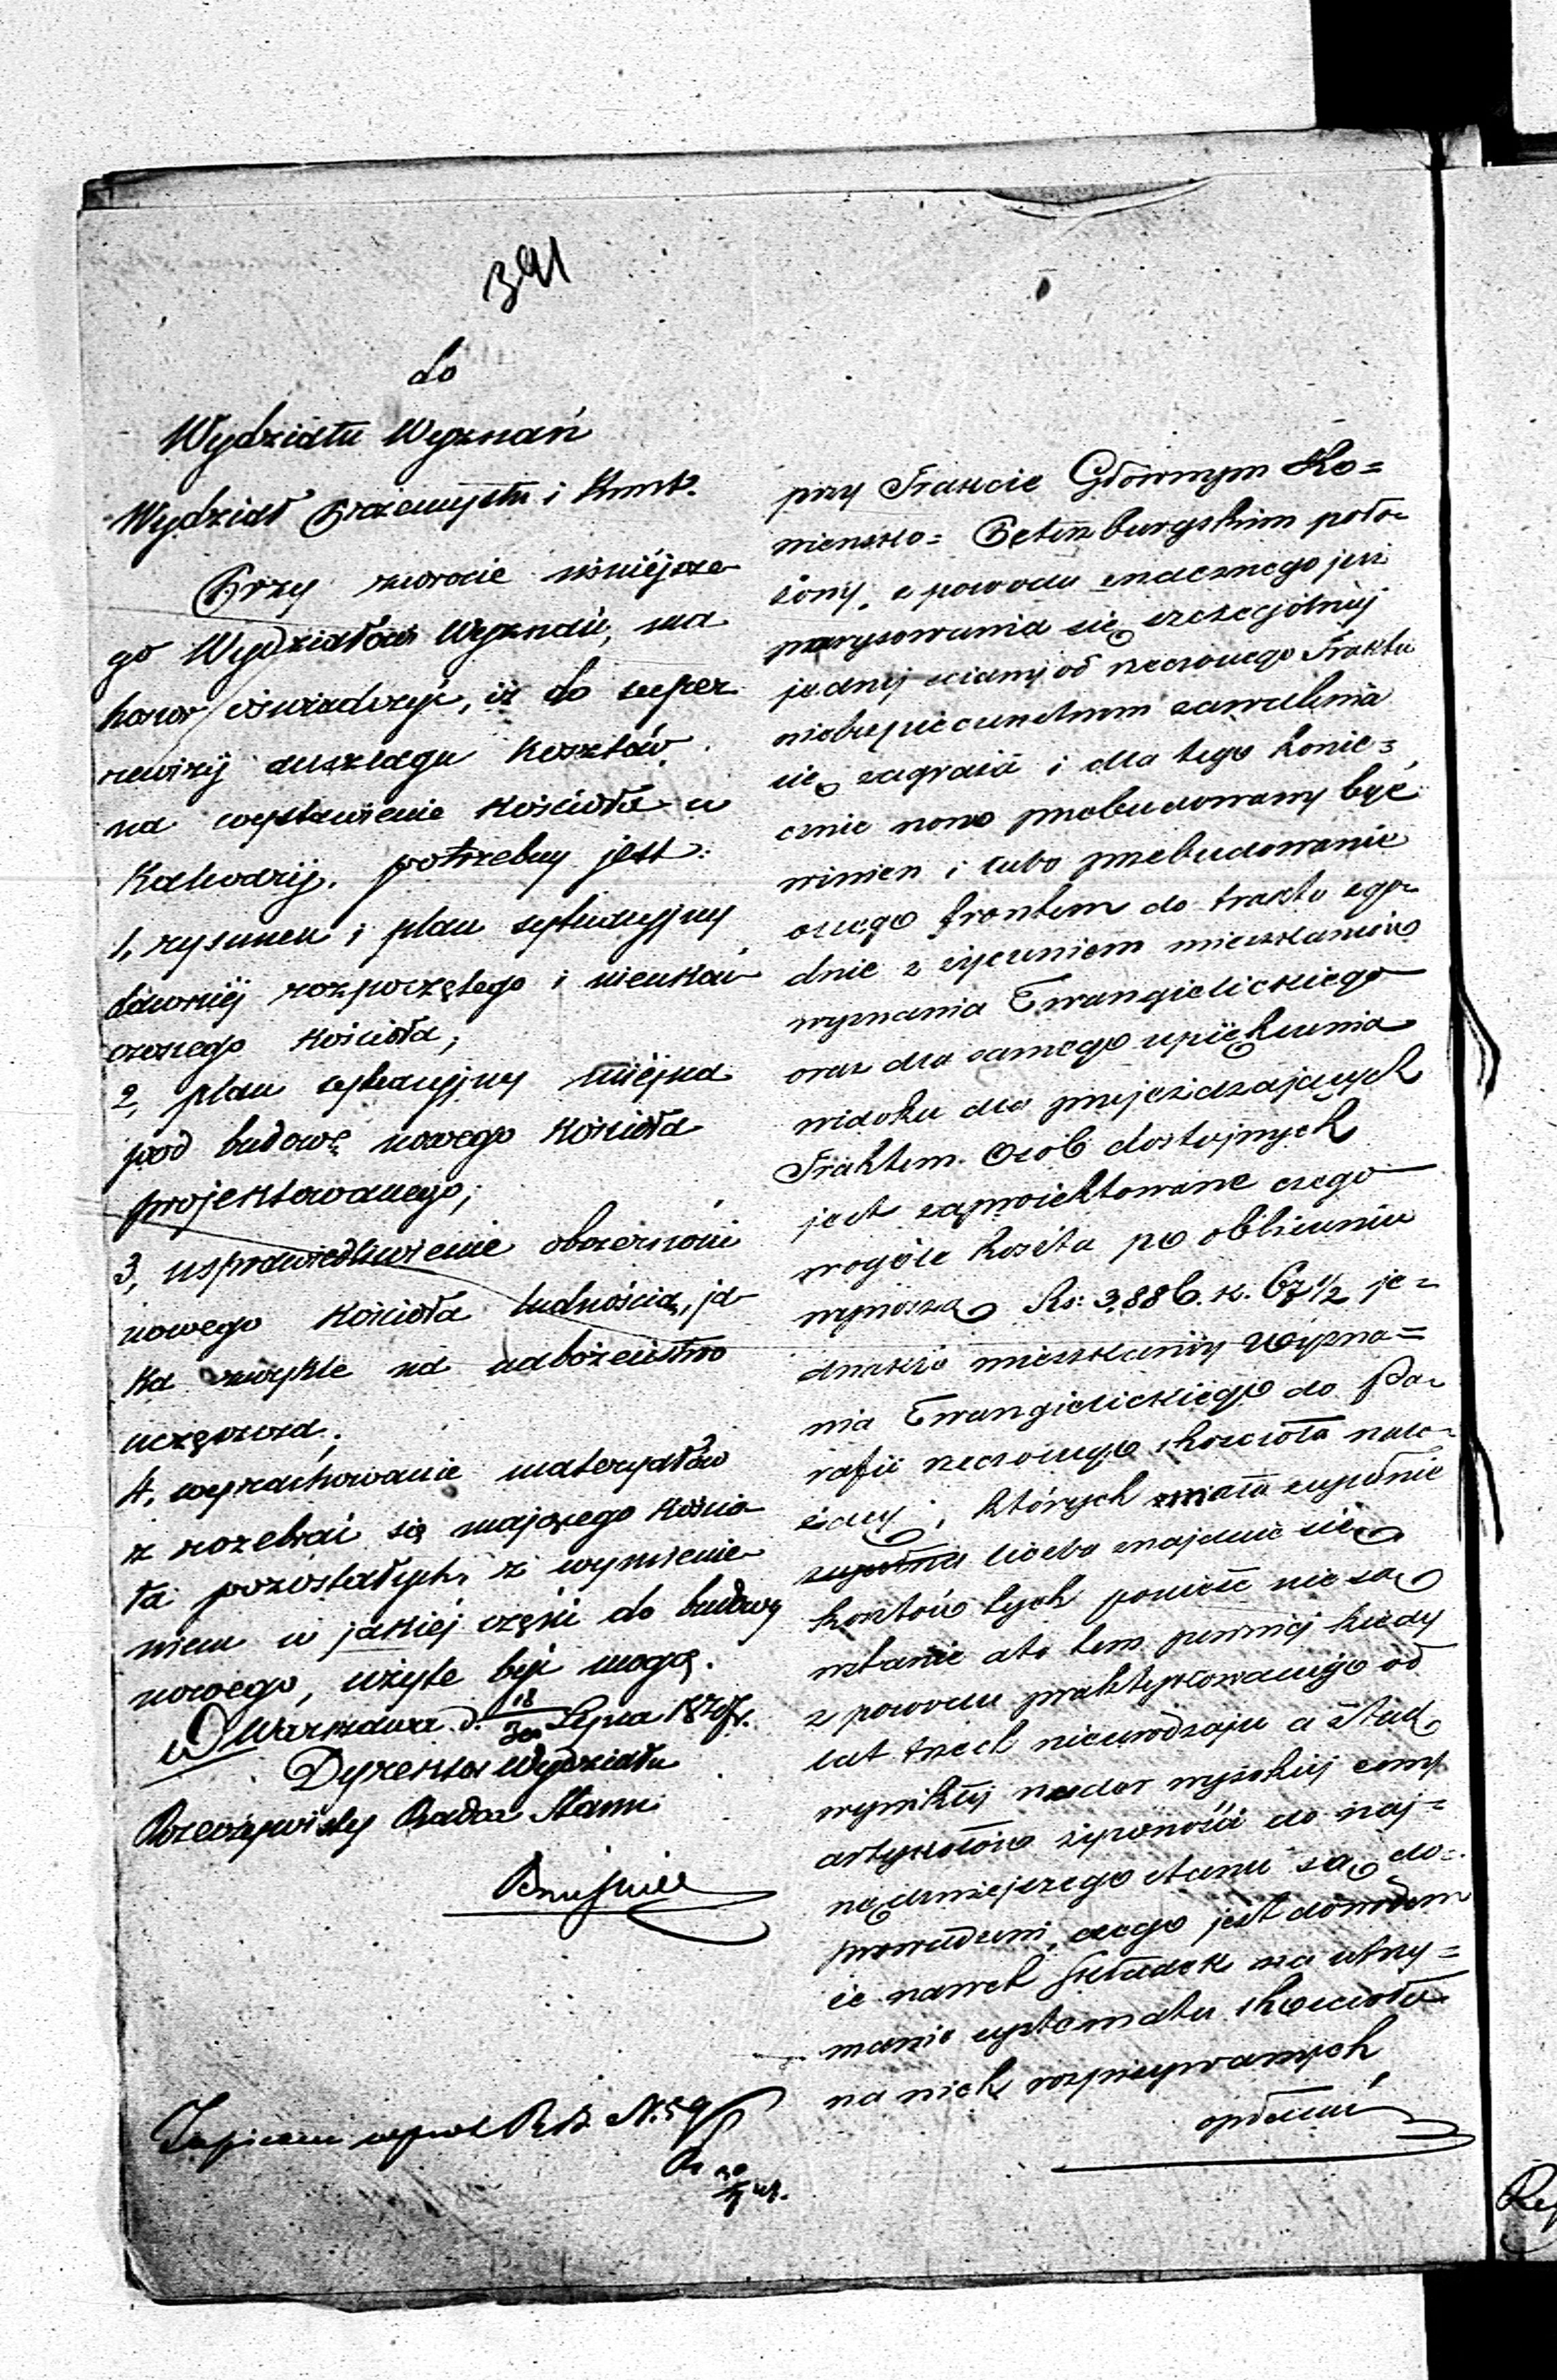 391
do
Wydziału Wyznań
Wydział Przemysłu i Kunst.
Przy zwrocie niniejsze-
go Wydziałowi Wyznań, ma
honor oświadczyć, iż do super
rewizyi anszlagu kosztów
na wystawienie kościoła w
Kalwaryi. potrzebny jest:
1, rysunek i plan sytuacyjny
dawniej rozpoczętego i nieukoń
czonego kościoła;
2, plan sytuacyjny miejsca
pod budowę nowego kościoła
projektowanego;
3, usprawiedliwienie obszerności
nowego kościoła ludnością, ja-
ka zwykle na nabożeństwo
uczęszcza;
4, wyrachowanie materyałów
z rozebrać się mającego kościo-
ła pozostałych, z wymienie-
niem w jakiej części do budowy
nowego, użyte być mogą.
w Warszawa d. 18/30 Lipca 1847 r.
Dyrektor Wydziału
Rzeczywisty Radca Stanu
przy Trakcie Głównym Ko=
wieńsko= Petersburgskim poło-
żony, z powodu znacznego już
porysowania się szczególniej
jednej ściany od rzeczonego Traktu
niebezpieczeństwem zawalenia
się zagraża i dla tego koniec=
cznie nowo przebudowany być
winien i lubo przebudowanie
onego frontem do traktu zgo-
dnie z życzeniem mieszkańców
wyznania Ewangielickiego
oraz dla samego upiększenia
widoku dla przejeżdzających
Traktem Osob dostojnych
jest zaproiektowane czego
wogóle koszta po obliczeniu
wynoszą Rs: 3,886. k. 67 1/2 je=
dnakże mieszkańcy Wyzna=
nia Ewangielickiego do Pa-
rafii rzeczonego kościoła nale-
żący, których mała zupełnie
liczba znajduie się
kosztów tych ponieść nie są
wstanie ato tem pewniej kiedy
z powodu praktykowanego od
lat trzech nieurodzaju a ztąd
wynikłej nader wysokiej ceny
artykułów żywności do naj=
nędzniejszego stanu są do=
prowadzeni, czego jest dowodem
że nawet składek na utrzy=
manie kościoła
na nich rozpisywanych
opłacić